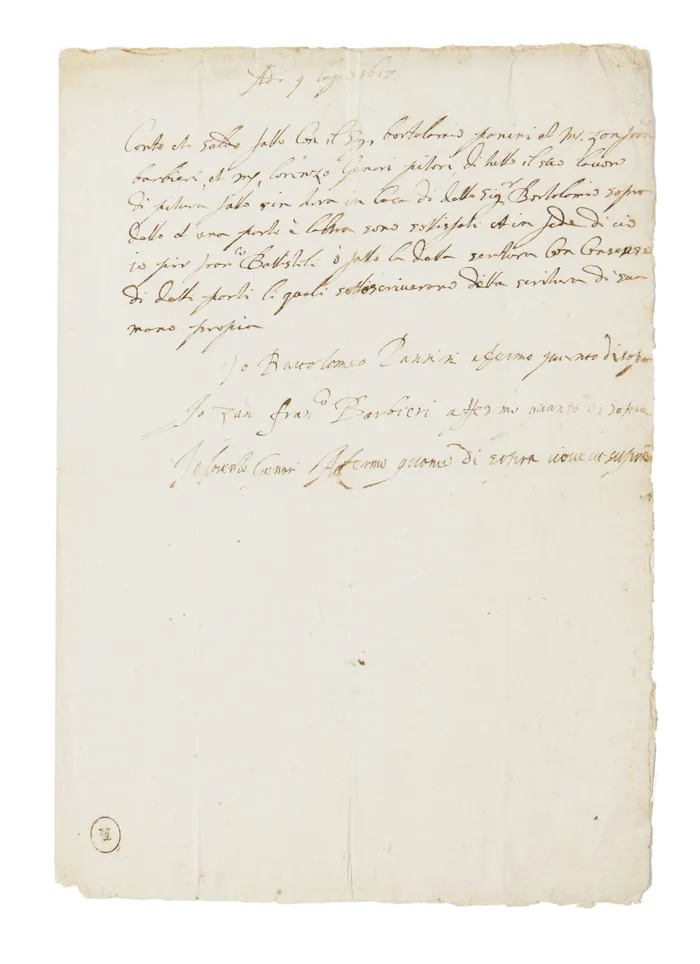 Adi 9 luglio 1617
Conto et saldo fatto con il Sigr bortolomio panini et m. Zan franco
barbieri, et m. lorenzo Genari pitori, di tutto il suo lavoro
di pitura fatto sin hora in casa di detto Sigr Bortolomio sopra
detto et una parti è laltra sono sottisfati et in fede di ciò
io pier franco Battisteli ò fatto la detta scritura con consenso
di dette parti li quali sottoscriverano detta scritura di sua
mano propia
Io Bartolomeo Pannini afermo quanto di sopra
Io Zan franco Barbieri affermo quanto di sopra
Io lorenzo Genari Afermo quanto di sopra